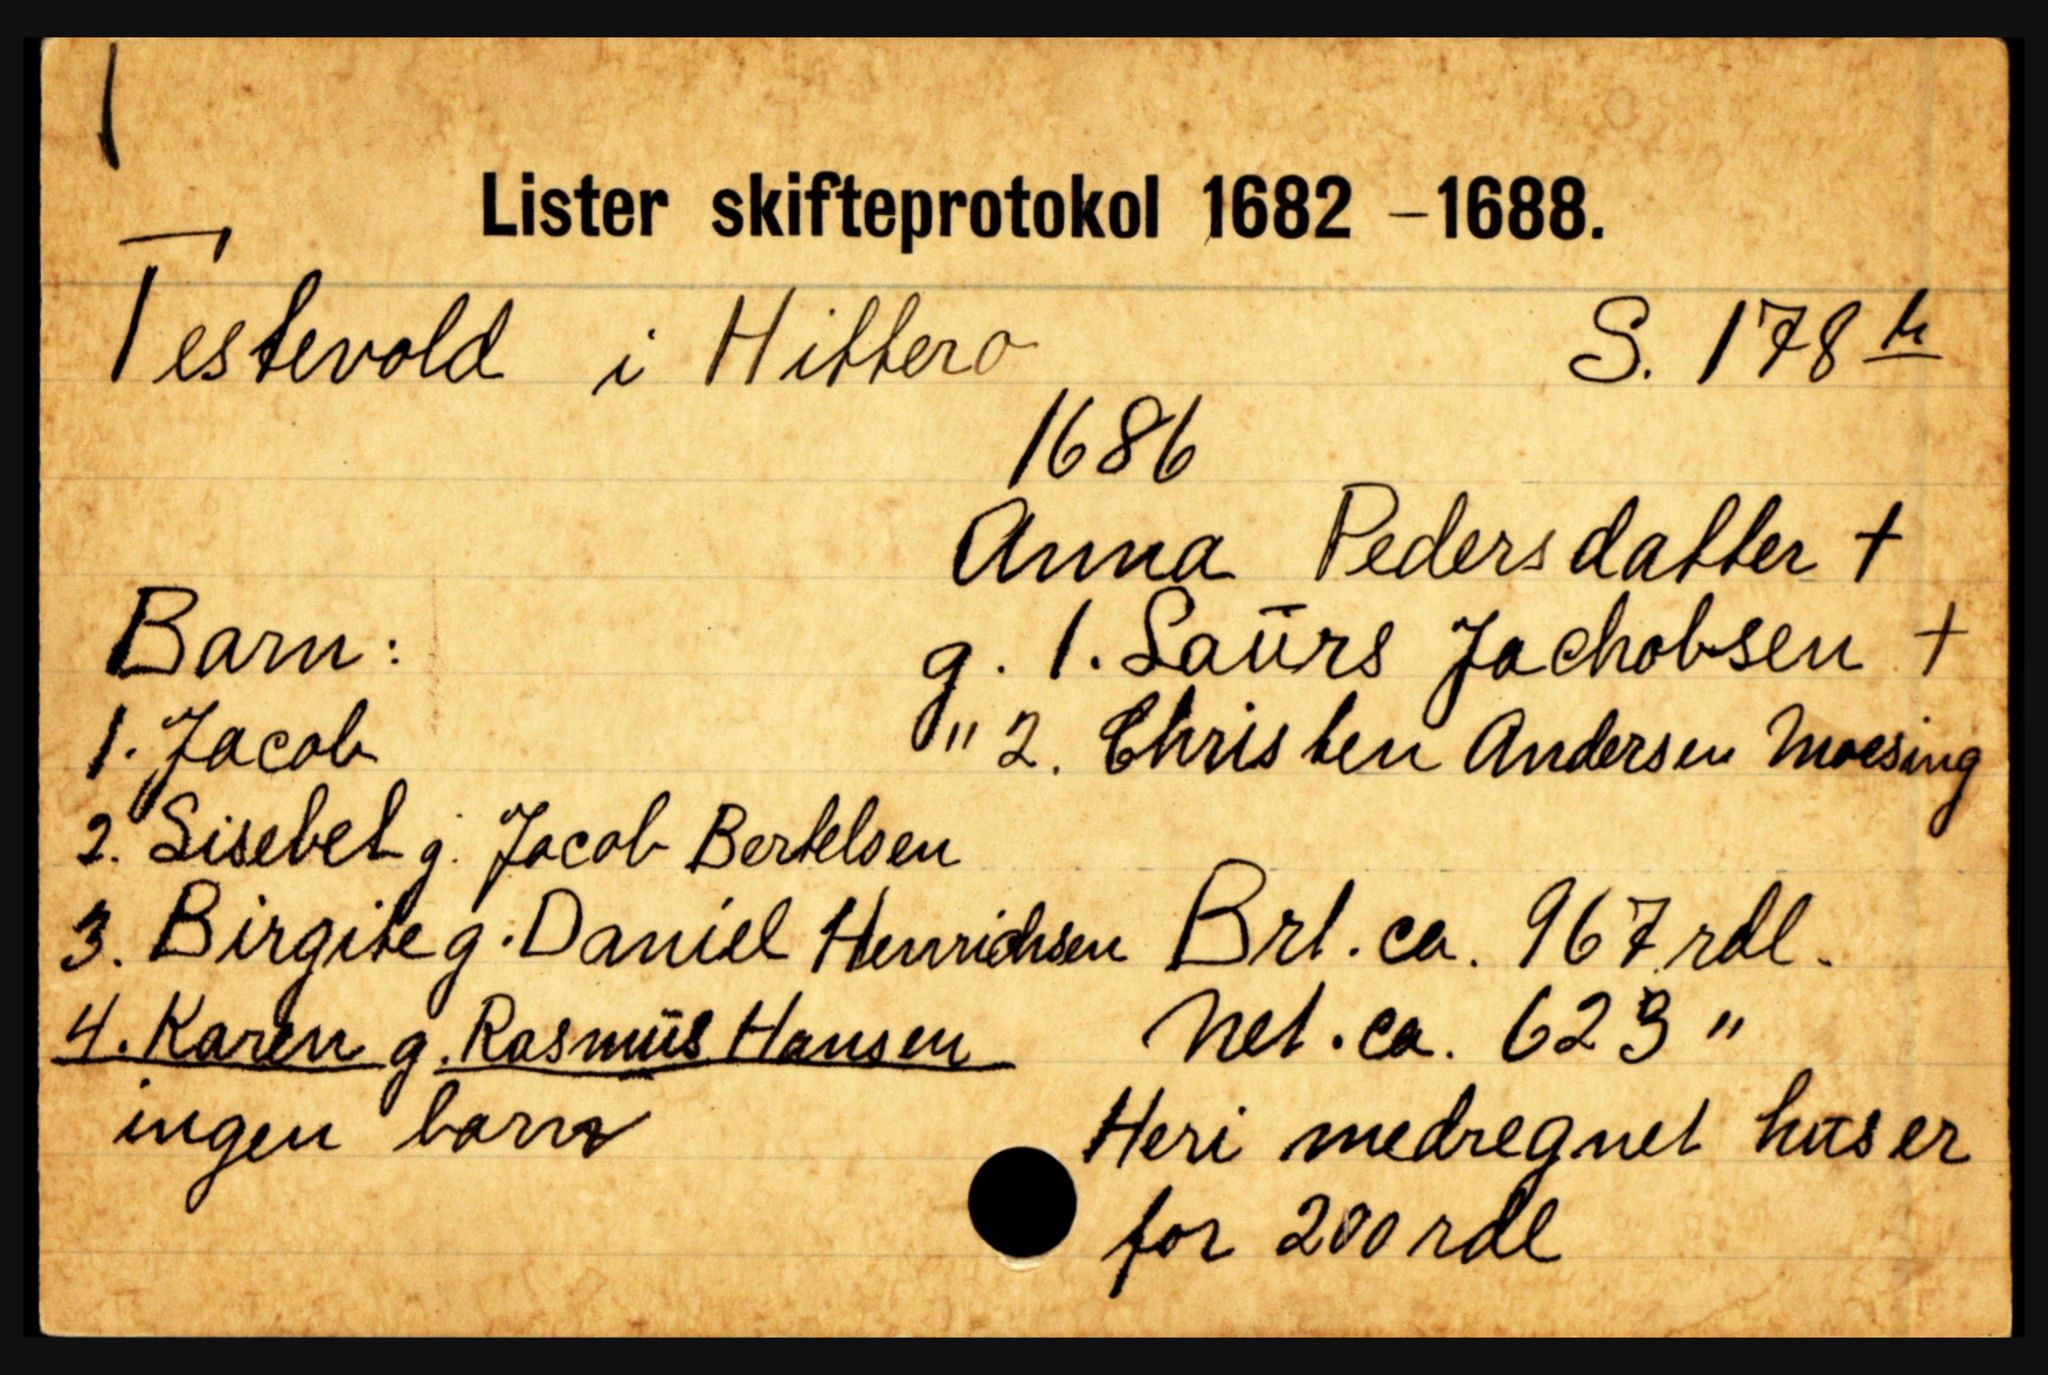 Lister skifteprotokol 1682 – 1688.
Testevold i Hittero S. 178 b
1686
Anna Pedersdatter +
g. 1. Laurs Jachobsen +
" 2. Christen Andersen Moesing
Barn:
1. Jacob
2. Sisebet g. Jacob Bertelsen
3. Birgite g. Daniel Henrichsen
4. Karen g. Rasmus Hansen
ingen barn
Brt. ca. 967 rdl.
Net. ca. 623 "
Heri medregnet huser
for 200 rdl